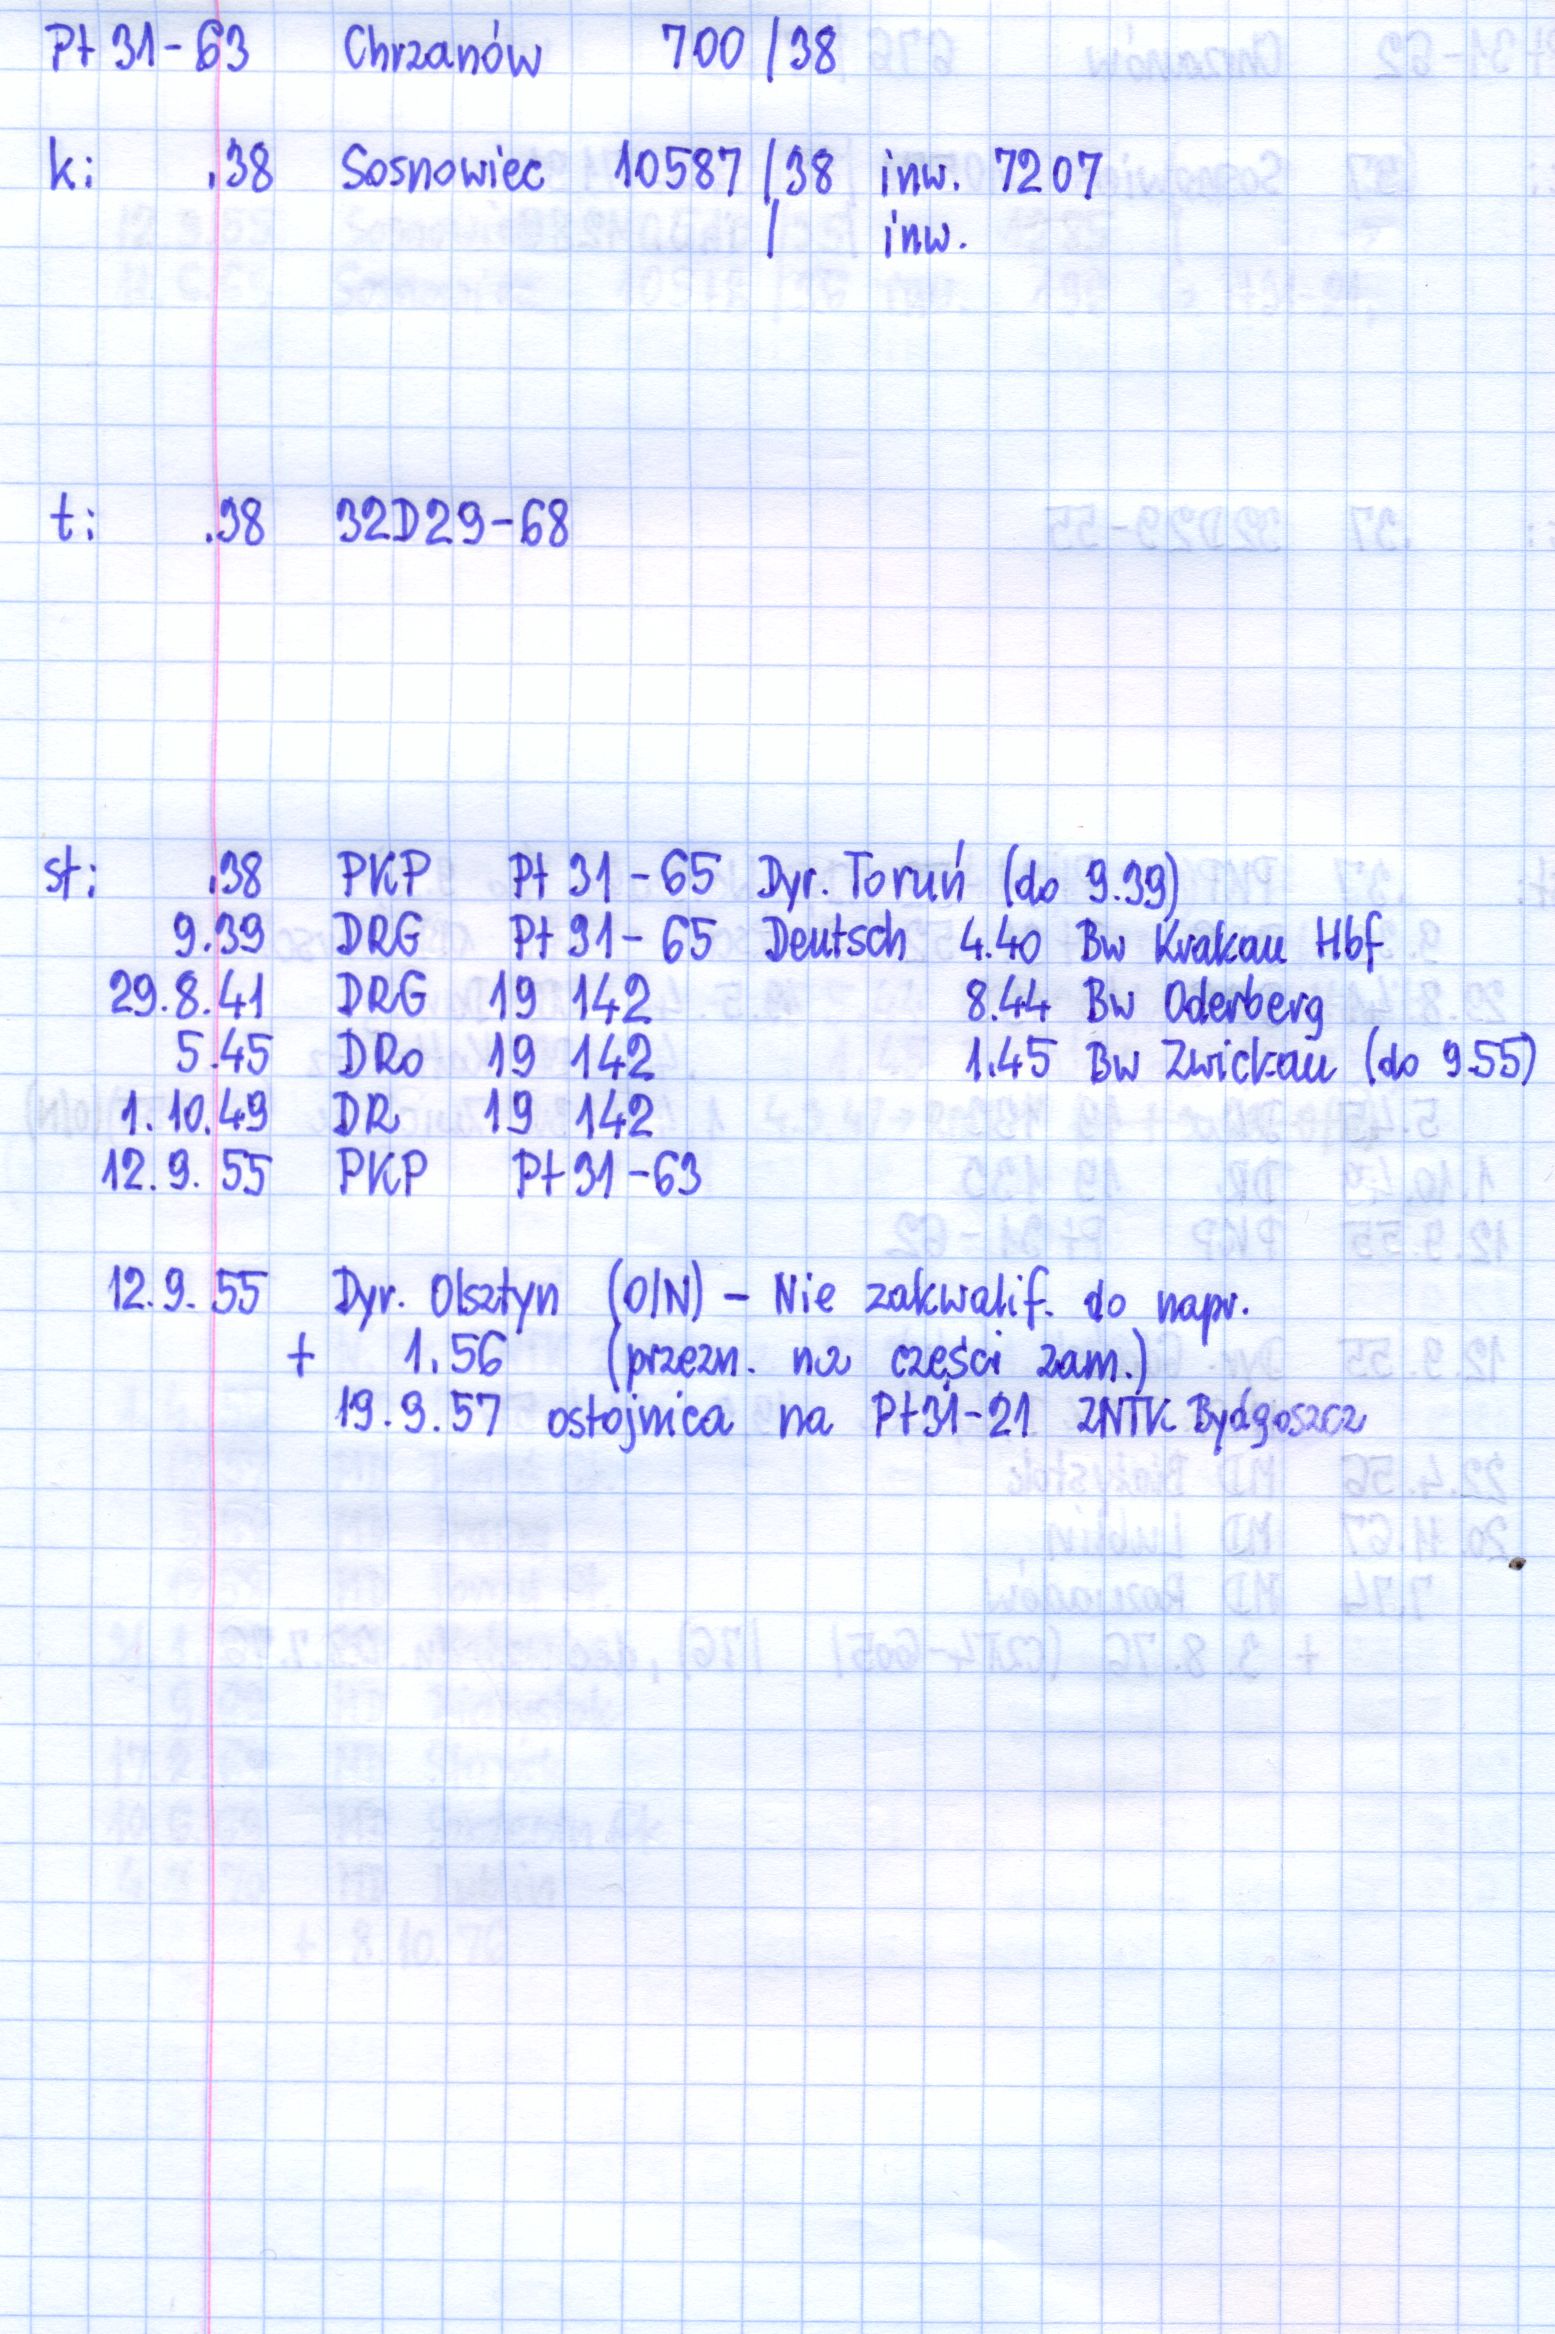 Pt 31-63 Chrzanów 700/38
k: .38 Sosnowiec 10587/38 inw. 7207
/ inw.
t: .38 32D29-68
st: .38 PKP Pt 31-65 Dyr. Toruń (do 9.39)
9.39 DRG Pt 31-65 Deutsch 4.40 Bw Krakau Hbf
29.8.41 DRG 19 142 8.44 Bw Oderberg
5.45 DRo 19 142 1.45 Bw Zwickau (do 9.55)
1.10.49 DR 19 142
12.9.55 PKP Pt 31-63
12.9.55 Dyr. Olsztyn (O/N) - Nie zakwalif. do napr.
+ 1.56 (przezn. na części zam.)
19.9.57 ostojnica na Pt31-21 ZNTK Bydgoszcz